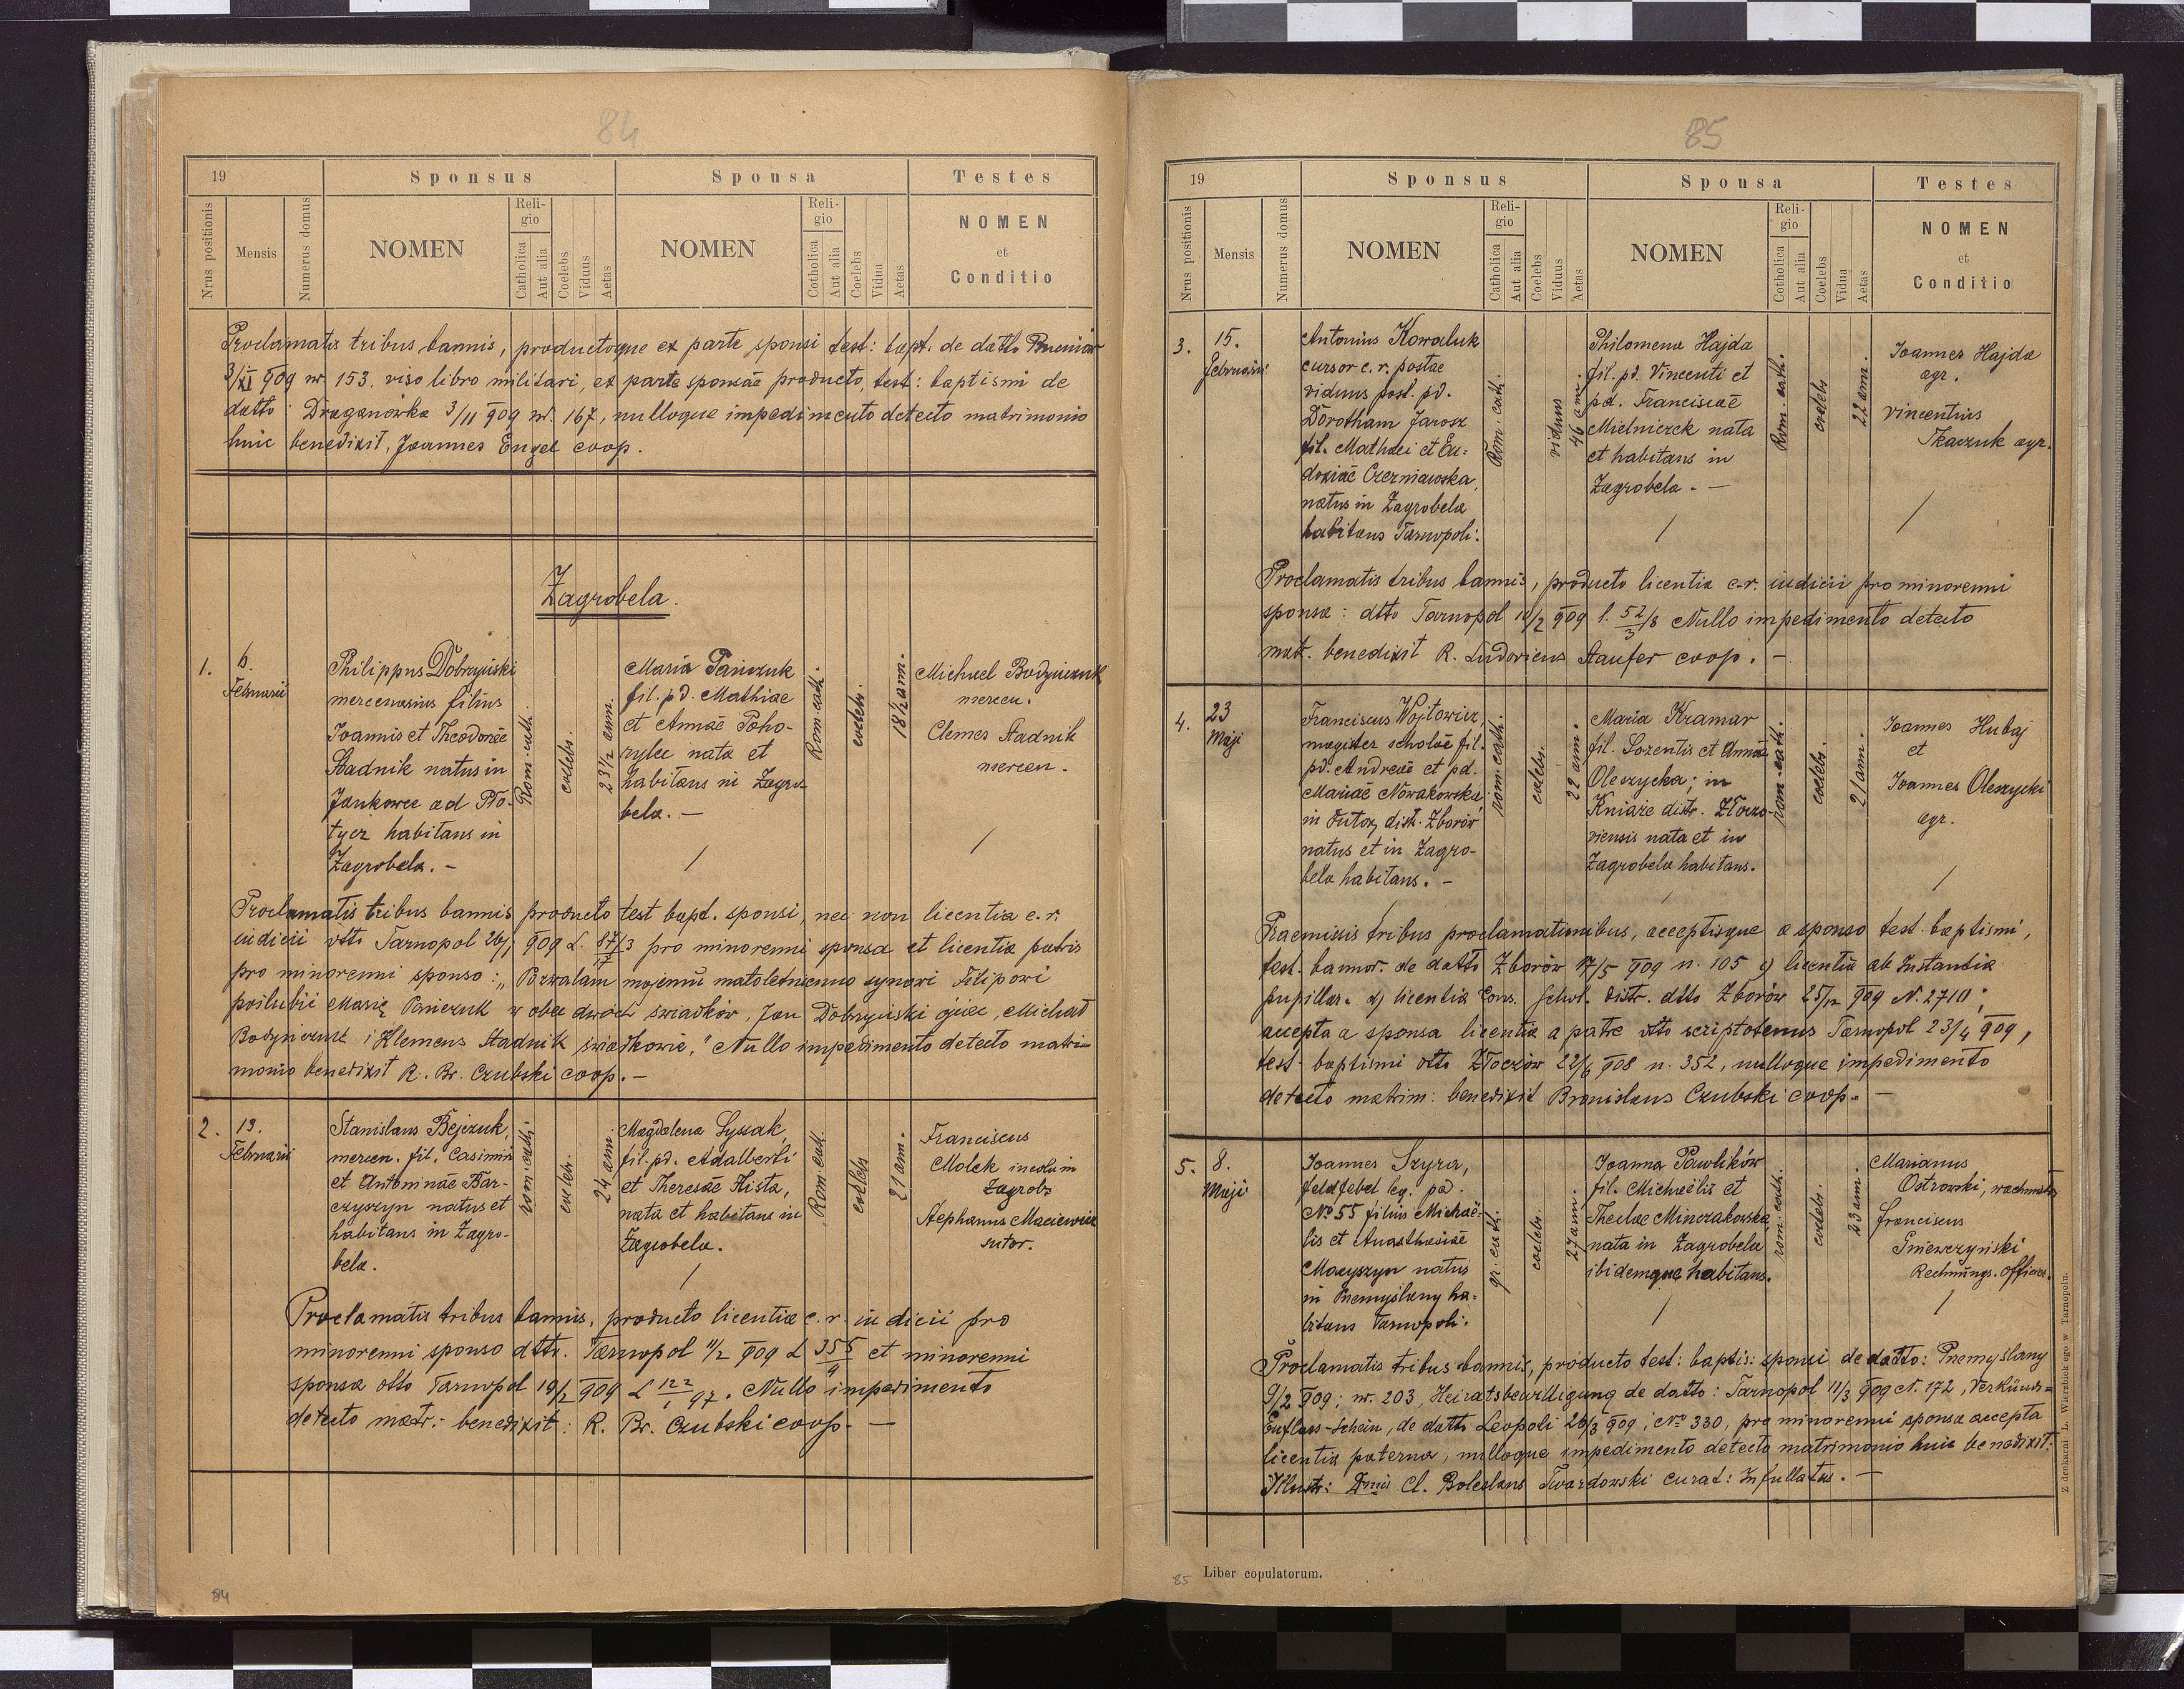 84
19
Sponsus
Sponsa
Testes
Nrus positionis
Mensis
Numerus domus
NOMEN
Reli-
gio
Catholica
Aut alia
Coelebs
Viduus
Aetas
NOMEN
Reli-
gio
Catholica
Aut alia
Coelebs
Vidua
Aetas
NOMEN
et
Conditio
Proclamatis tribus bannis, productoque ex parte sponsi test: bapt. de datto
3/XI 909 nr 153. viso libro militari, ex parte sponsae producto test: baptismi de
datto Draganówka 3/11 909 nr. 167, nulloque impedimento detecto matrimonio
huic benedixit, Joannes Engel coop.
Zagrobela.
1.
6.
Februarii
Philippus Dobrzyński
mercenarius filius
Joannis et Theodorae
Stadnik natus in
Jankowce ad Pło-
tycz habitans in
Zagrobela. -
Rom. cath.
coelebs.
23 1/2 ann.
Maria Pańczuk
fil. pd. Mathiae
et Annae Poho-
rylec nata et
habitans in Zagro-
bela. -
Rom. cath.
coelebs.
18 1/2 ann.
Michael Bodynczuk
mercen.
Clemes Stadnik
mercen.
Proclamatis tribus bannis producto test bapt. sponsi, nec non licentia c. r.
iudicii dtto Tarnopol 26/1 909 L. 87/3 pro minorenni sponsa et licentia patris
pro minorenni sponso: „Pozwalam mojemu małoletniemu synowi Filipowi
poślubić Maryę Pańczuk w obec dwóch świadków, Jan Dobrzyński ojciec, Michał
i Klemens Stadnik świadkowie." Nullo impedimento detecto matri-
monio benedixit R. Br. Czubski coop. -
2.
13.
Februarii
Stanislaus Bejczuk,
mercen. fil. Casimiri
et Antoninae Bar-
czyszyn natus et
habitans in Zagro-
bela.
rom. cath.
coelebs.
24 ann.
Magdalena Lyssak,
fil. pd. Adalberti
et Theresae Hista,
nata et habitans in
Zagrobela.
Rom. cath.
coelebs
21 ann.
Franciscus
Molek incola in
Zagrob.
Stephanus Maciewicz
sutor.
Proclamatis tribus bannis, producto licentia c. r. iudicii pro
minorenni sponso dtto. Tarnopol 11/2 909 L 355/4 et minorenni
sponsa dtto Tarnopol 19/2 909 L 122/1 97. Nullo impedimento
detecto matr. benedixit: R. Br. Czubski coop. -
84
85
19
Sponsus
Sponsa
Testes
Nrus positionis
Mensis
Numerus domus
NOMEN
Reli-
gio
Catholica
Aut alia
Coelebs
Viduus
Aetas
NOMEN
Reli-
gio
Catholica
Aut alia
Coelebs
Vidua
Aetas
NOMEN
et
Conditio
3.
15.
Februarii
Antonius Kowaluk
cursor c. r. postae
viduus post. pd.
Dorotham Jarosz
fil. Mathaei et Eu-
doxiae Czerniawska,
natus in Zagrobela
habitans Tarnopoli.
Rom. cath.
viduus
46 ann.
Philomena Hajda
fil. pd. Vincenti et
pd. Franciscae
Mielniczek nata
et habitans in
Zagrobela. -
Rom. cath.
coelebs
22 ann.
Joannes Hajda
agr.
Vincentius
Tkaczuk agr.
Proclamatis tribus bannis, producto licentia c. r. iudicii pro minorenni
sponsa: dtto Tarnopol 10/2 909 l. 52/3/8 Nullo impedimento detecto
matr. benedixit R. Ludovicus Staufer coop. -
4.
23
Maji
Franciscus Wojtowicz,
magister scholae fil.
pd. Andreae et pd.
Mariae Nowakowska,
in Futor, distr. Zborów
natus et in Zagro-
bela habitans. -
rom. cath.
coelebs.
22 ann.
Maria Kramar
fil. Lorentis et Annae
Oleszycka; in
Kniaże distr. Złoczo-
viensis nata et in
Zagrobela habitans.
rom. cath.
coelebs.
21 ann.
Joannes Hubaj
et
Joannes Oleszycki
agr.
Praemissis tribus proclamationibus, acceptisque a sponso test. baptismi,
test. bannor. de datto Zborów 17/5 909 n. 105 c) licentia ab Instantia
pupillar. d) licentia Cons. Schol. distr. dtto Zborów 25/12 909 N. 2710;
accepta a sponsa licentia a patre dtto scriptotenus Tarnopol 23/4 909,
test. baptismi dtto Złoczów 22/6 908 n. 352, nulloque impedimento
detecto matrim: benedixit Bronislaus Czubski coop. -
5.
8.
Maji
Joannes Szyra,
feldfebel leg. pd.
No 55 filius Michaë-
lis et Anasthasiae
Macyszyn natus
in Przemyślany ha-
bitans Tarnopoli.
gr. cath.
coelebs.
27 ann.
Joanna Pawlików
fil. Michaëlis et
Theclae Minczakowska
nata in Zagrobela
ibidemque habitans.
rom. cath.
coelebs.
23 ann.
Marianus
Ostrowski, wachmstr
Franciscus
Gniewczyński
Rechnungs. Officier.
Proclamatis tribus bannis, producto test: baptis: sponsi de datto: Przemyślany
9/2 909; nr. 203, Heiratsbewilligung de datto: Tarnopol 11/3 909 N. 172, Verkünd-
-Schein, de datto Leopoli 28/3 909; No 330, pro minorenni sponsa accepta
licentia paterna, nulloque impedimento detecto matrimonio huic benedixit:
Illustr: Dnus Cl. Boleslaus Twardowski curat: Infullatus. -
85
Liber copulatorum.
Z drukarni L. Wierzbickiego w Tarnopolu.